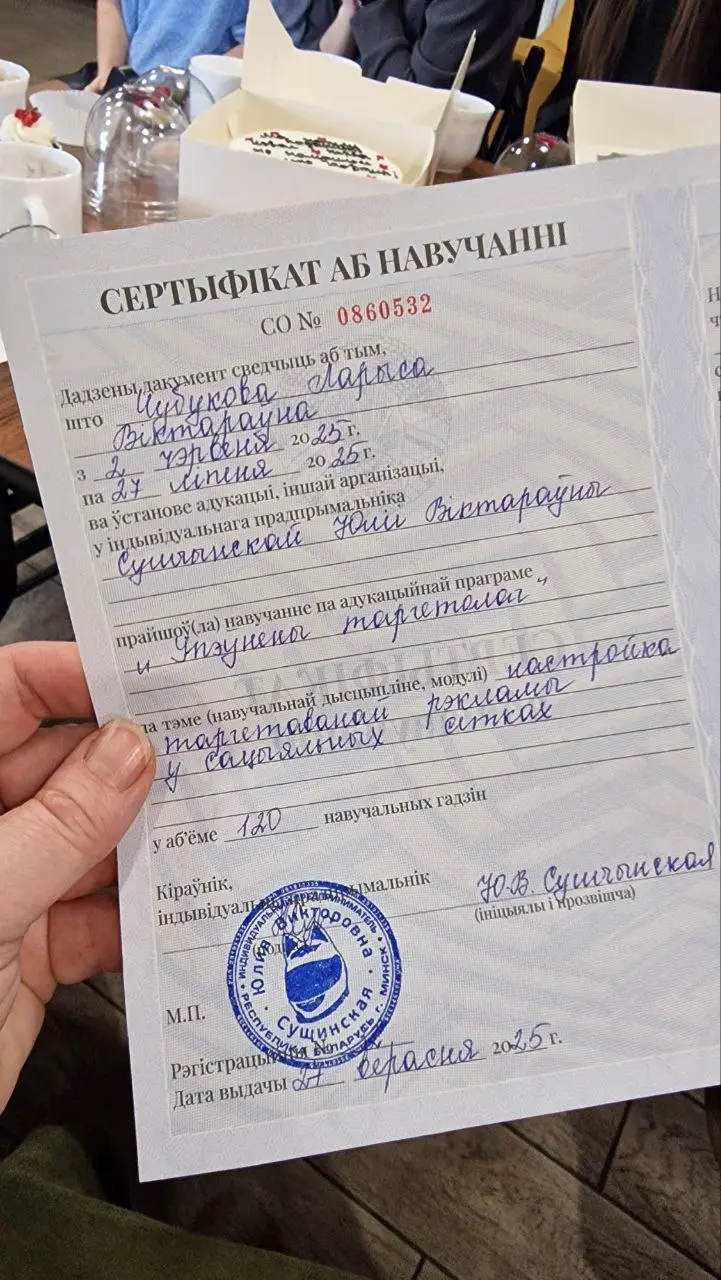 СЕРТЫФІКАТ АБ НАВУЧАННІ
СО № 0860532
Дадзены дакумент сведчыць аб тым,
што Чубукова Ларыса
Віктараўна
з 2 чэрвеня 2025 г.
па 27 ліпеня 2025 г.
ва ўстанове адукацыі, іншай арганізацыі,
у індывідуальнага прадпрымальніка
Сушчынскай Юліі Віктараўны
прайшоў(ла) навучанне па адукацыйнай праграме
"Упэўнены таргетолаг"
па тэме (навучальнай дысцыпліне, модулі) настройка
таргетаванай рэкламы
у сацыяльных сетках
у аб'ёме 120 навучальных гадзін
Кіраўнік,
індывідуальны прадпрымальнік
Ю.В. Сушчынская
(ініцыялы і прозвішча)
ИНДИВИДУАЛЬНЫЙ ПРЕДПРИНИМАТЕЛЬ
Юлия Викторовна
Сущинская
РЕСПУБЛИКА БЕЛАРУСЬ г. МИНСК
М.П.
Рэгістрацыйны №
Дата выдачы 27 верасня 2025 г.